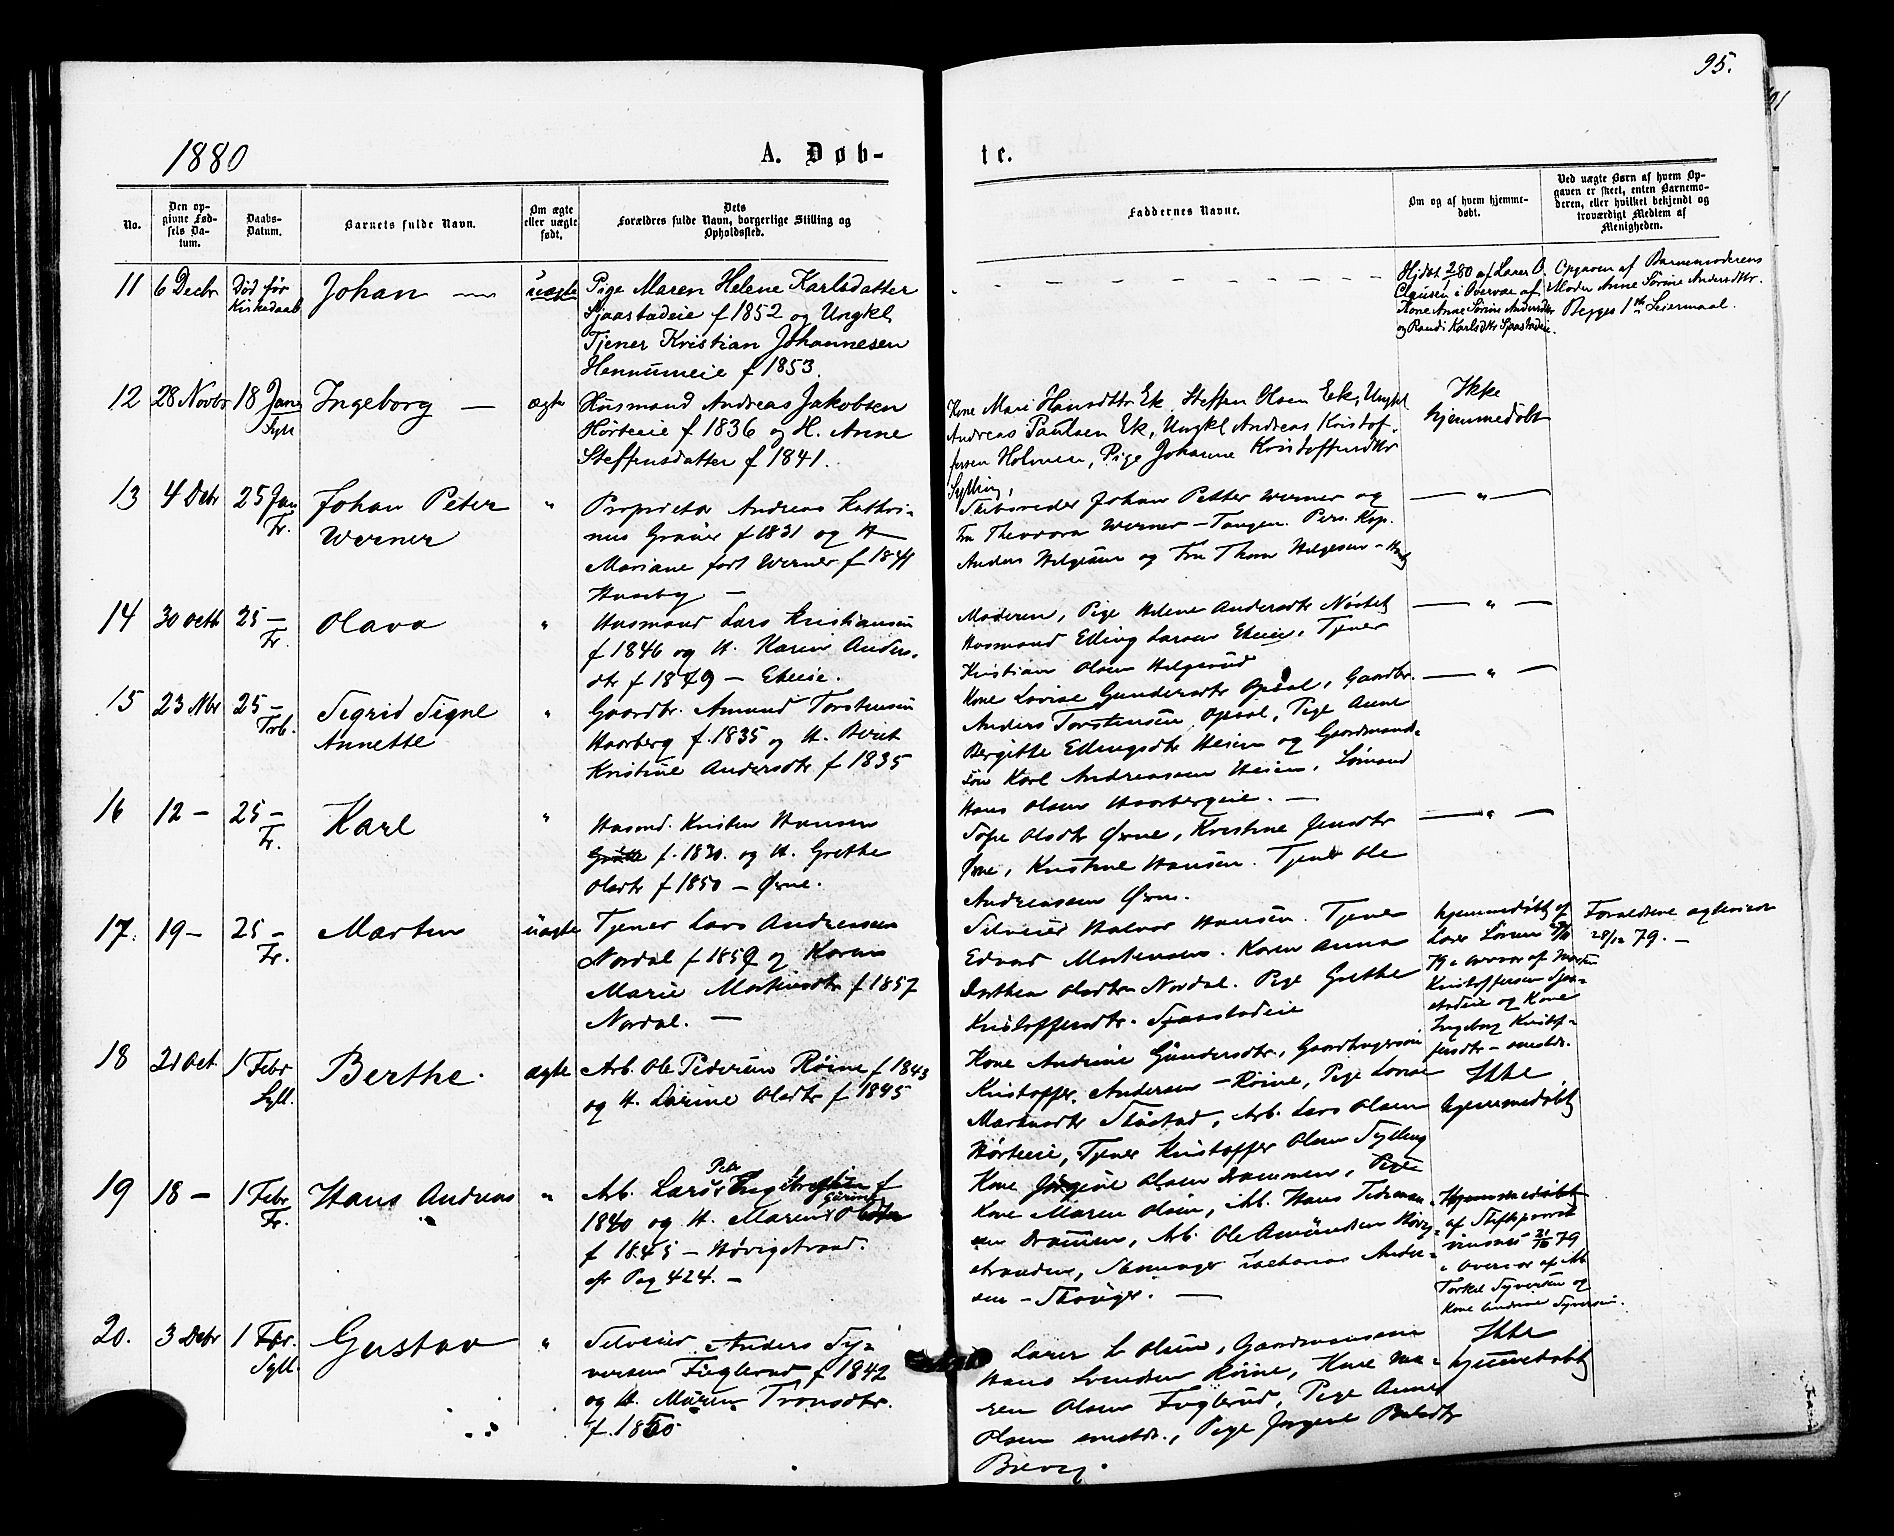 95.
1880
A. Døb-
te.
No.
Den op-
givne Fød-
sels Da-
tum.
Daabs-
Datum.
Barnets fulde Navn.
Om ægte
eller uægte
født.
Dets
Forældres fulde Navn, borgerlige Stilling og
Opholdssted.
Faddernes Navne.
Om og af hvem hjemme-
døbt.
Ved uægte Børn af hvem Op-
gaven er skeet, enten Barnemo-
deren, eller hvilket bekjendt og
troværdigt Medlem af
Menigheden.
11 6 Decbr Død før
Kirkedaab
Johan
uægte
Pige Maren Helene Karlsdatter
Sjaastadeie f 1852 og Ungkl.
Tjener Kristian Johannesen
Hennumeie f 1853.
Clausen i Overvær af
Kone Anne Sørine Andersdtr
og Randi Karlsdtr Sjaastadeie.
Opgaven af Barnemoderens
Moder Anne Sørine Andersdtr.
Begges 1ste Leiermaal.
12 28 Novbr 18 Jan
Syll
Ingeborg
ægte
Husmand Andreas Jakobsen
Hørteeie f 1836 og H. Anne
Steffensdatter f 1841.
Kone Mari Hansdtr Ek, Steffen Olsen Eek, Ungkl
Andreas Paulsen Ek, Ungkl Andreas Kristof-
fersen Holmen, Pige Johanne Kristoffersdtr
Sylling,
Ikke
hjemmedøbt
13 4 Decbr 25 Jan
Fr.
Johan Peter
Werner
"
Proprietær Andreas Kathri-
nus Grøner f 1831 og H
Mariane født Werner f 1841
Huseby —
Skibsreder Johan Petter Werner og
Fru Theodora Werner — Tangen. Pers. Kap.
Anders Helgesen og Fru Thora Helgesen —
— " —
14 30 Octb 25 —
Fr.
Olava
"
Husmand Lars Kristiansen
f 1846 og H. Karen Anders-
dtr f 1849 — Ekeie.
Moderen, Pige Helene Andersdtr Nøsted
Husmand Elling Larsen Ekeie, Tjener
Kristian Olsen Helgerud
— " —
15 23 Nbr 25 —
Sigrid Signe
Annette
"
Gaardbr. Amund Torstensen
Haarberg f. 1835 og H. Berit
Kristine Andersdtr f 1835
Kone Lovise Gundersdtr Opsal, Gaardbr.
Anders Torstensen Opsal, Pige Anne
Bergitte Ellingsdtr Heien og Gaardmands-
søn Karl Andreassen Heien, Sømand
Hans Olsen Haarbergeie. —
— " —
16 12 — 25 —
Fr.
Karl
"
Husmd. Kristen Hansen
f. 1830. og H. Grethe
Olsdtr f 1850 — Ørne.
Sofie Olsdtr Ørne, Kristine Jensdtr
Ørne, Kristine Hansen. Tjener Ole
Andreassen Ørne.
— " —
17. 19 — 25 —
Fr.
Martin
uægte
Tjener Lars Andreasen
Nordal f 1859 og Karen
Marie Mortensdtr f 1857
Nordal. —
Selveier Halvor Hansen. Tjener
Edvard Mortensen. Karen Anna
Dorthea Olsdtr Nordal. Pige Grethe
Kristoffersdtr. Sjaastadeie
hjemmedøbt af
Kristoffersen Sjaa-
stadeie og Kone
Ingeborg Kristof-
fersdtr —
Forældrene
28/12 79. —
18 21 Oct 1 Febr
Syll.
Berthe.
ægte
Arb. Ole Pedersen Røine f 1843
og H. Larine Olsdtr f 1845
Kone Andrine Gundersdtr,
Kristoffer Andersen — Røine, Pige Lovise
Arb. Lars Olsen
Hørteeie, Tjener Kristoffer Olsen Sylling
Ikke
hjemmedøbt
19 18 — 1 Febr
Fr.
Hans Andreas
"
Arb. Lars
Peter
f
1840 og H. Maren
f 1845 — Høvigstrand.
cfr Pag 424. —
Kone Jørgine Olsen Drammen, Pige
Kone Maren Olsen, Arb. Hans
Drammen, Arb. Ole Amundsen Høvig-
stranden, Zakarias Ander-
sen —
Hjemmedøbt
79
i Overvær af Arb.
Torkel Syversen og
Kone Andrine Syversen.
20. 3 Decbr 1
Syll.
Gustav
"
Selveier Anders Sy-
versen Fuglerud f 1842
og H. Maren Tronsdtr.
f. 1850
Lærer L Olsen, Gaardmandssøn
Hans Svendsen Røine, Kone Ma-
ren Olsen Fuglerud, Pige Anne
Olsen Pige Jørgine
Ikke
hjemmedøbt